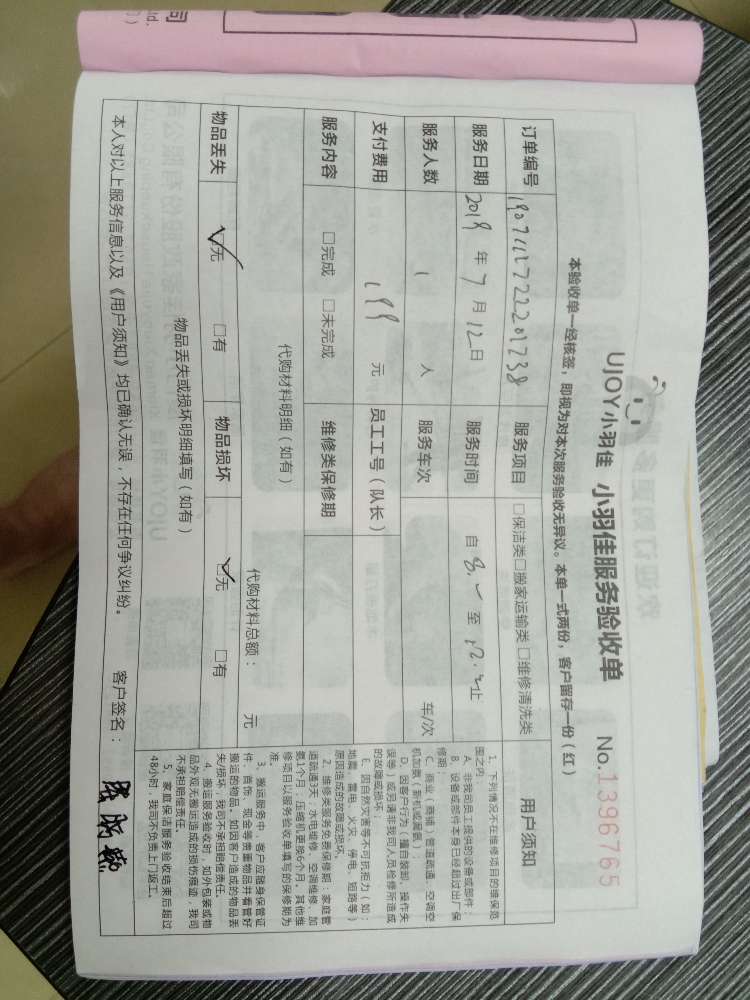 UJOY小羽佳 小羽佳服务验收单 No.1396765
本验收单一经核签，即视为对本次服务验收无异议。本单一式两份，客户留存一份（红）
订单编号 服务项目 □保洁类□搬家运输类 □维修清洗类
服务日期 2019 年 7 月 12 日 服务时间 自 至 止
服务人数 1 人 服务车次 车/次
支付费用 199 元 员工工号（队长）
服务内容 □完成 □未完成 维修类保修期
代购材料明细（如有） 代购材料总额： 元
物品丢失 ☑无 □有 物品损坏 ☑无 □有
物品丢失或损坏明细填写（如有）
本人对以上服务信息以及《用户须知》均已确认无误，不存在任何争议纠纷。 客户签名：
用户须知
1、下列情况不在维修项目的维保范
围之内：
A、非我司员工提供的设备或部件；
B、设备或部件本身已经超过出厂保
修期；
C、商业（商铺）管道疏通、空调空
机加氨（新机或漏氨）；
D、因客户行为（擅自装卸、操作失
误等）或另请非我司人员检修所造成
的故障或损坏；
E、因自然灾害等不可抗拒力（如：
地震、雷电、火灾、停电、短路等）
原因造成的故障或损坏。
2、维修类服务免费保修期：家庭管
道疏通3天；水电维修、空调维修、加
氨1个月；压缩机更换6个月。其他维
修项目以服务验收单填写的保修期为
准。
3、搬运服务中，客户应随身保管证
件、首饰、现金等贵重物品并看管好
搬运的物品。如因客户造成的物品丢
失/损坏，我司不承担赔偿责任。
4、搬运服务验收时，如外包装或物
品外观无搬运造成的损伤痕迹，我司
不承担赔偿责任。
5、家庭保洁服务验收结束后超过
48小时，我司不负责上门返工。